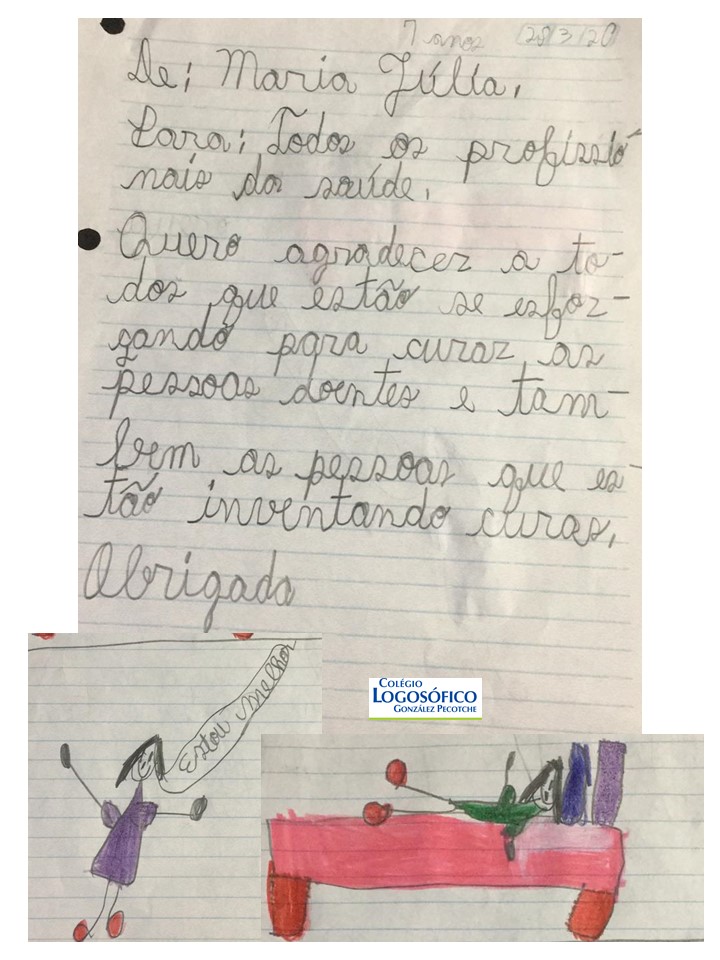 7 anos 28/3/20
De: Maria Júlia.
Para: Todos os profissio-
nais da saúde.
Quero agradecer a to-
dos que estão se esfor-
çando para curar as
pessoas doentes e tam-
bem as pessoas que es-
tão inventando curas.
Obrigada
Estou melhor
COLÉGIO
LOGOSÓFICO
GONZÁLEZ PECOTCHE